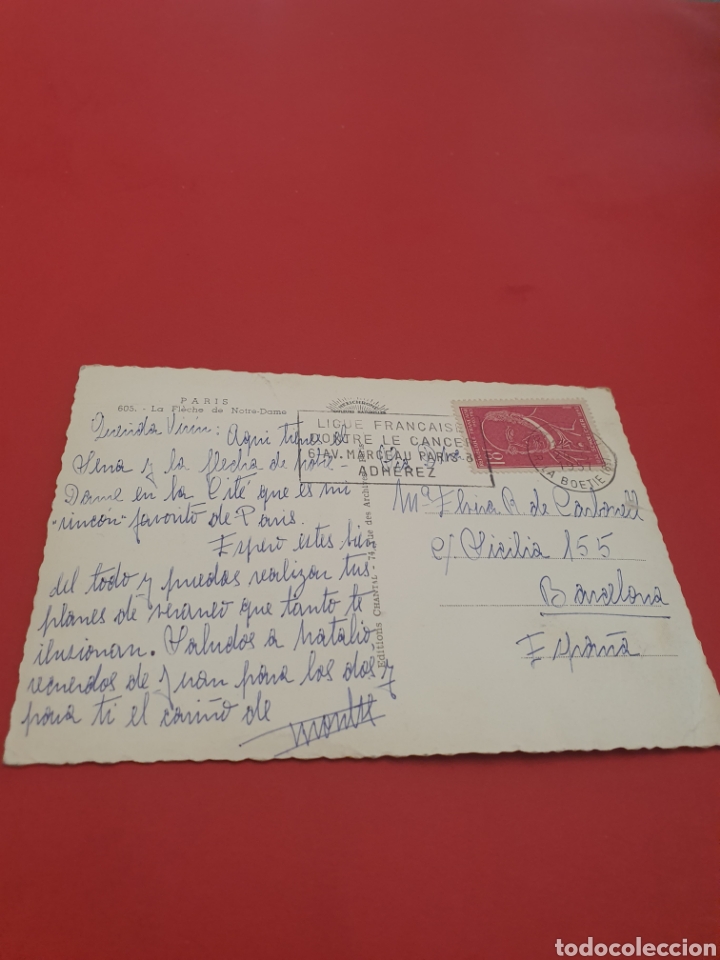 PARIS
605. - La Flèche de Notre-Dame
Querida Virín: Aquí tienes el
Sena y la flecha de Notre-
Dame en la Cité que es mi
"rincón" favorito de París.
Espero estés bien
del todo y puedas realizar tus
planes de veraneo que tanto te
ilusionan. Saludos a Natalio,
recuerdos de Juan para los dos y
para ti el cariño de
Montse
Editions CHANTAL - 74, Rue des Archives
LIGUE FRANÇAISE
CONTRE LE CANCER
61 AV. MARCEAU PARIS
ADHÉREZ
LA BOETIE
Mª Elvira R. de Carbonell
c/ Sicilia 155
Barcelona
España
todocoleccion